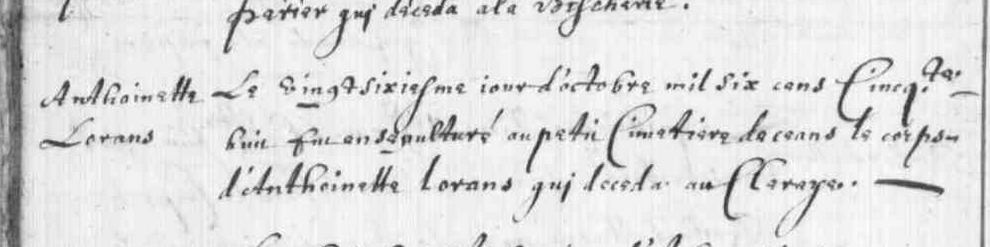 Parier qui deceda a la Vescherie.
Anthoinette Le Vingtsixiesme iour d'octobre mil six cens Cincq.te
Lorans huit fut ensepulturé au petit Cimetiere de ceans le corps
d'Anthoinette Lorans qui deceda au Cleraye.